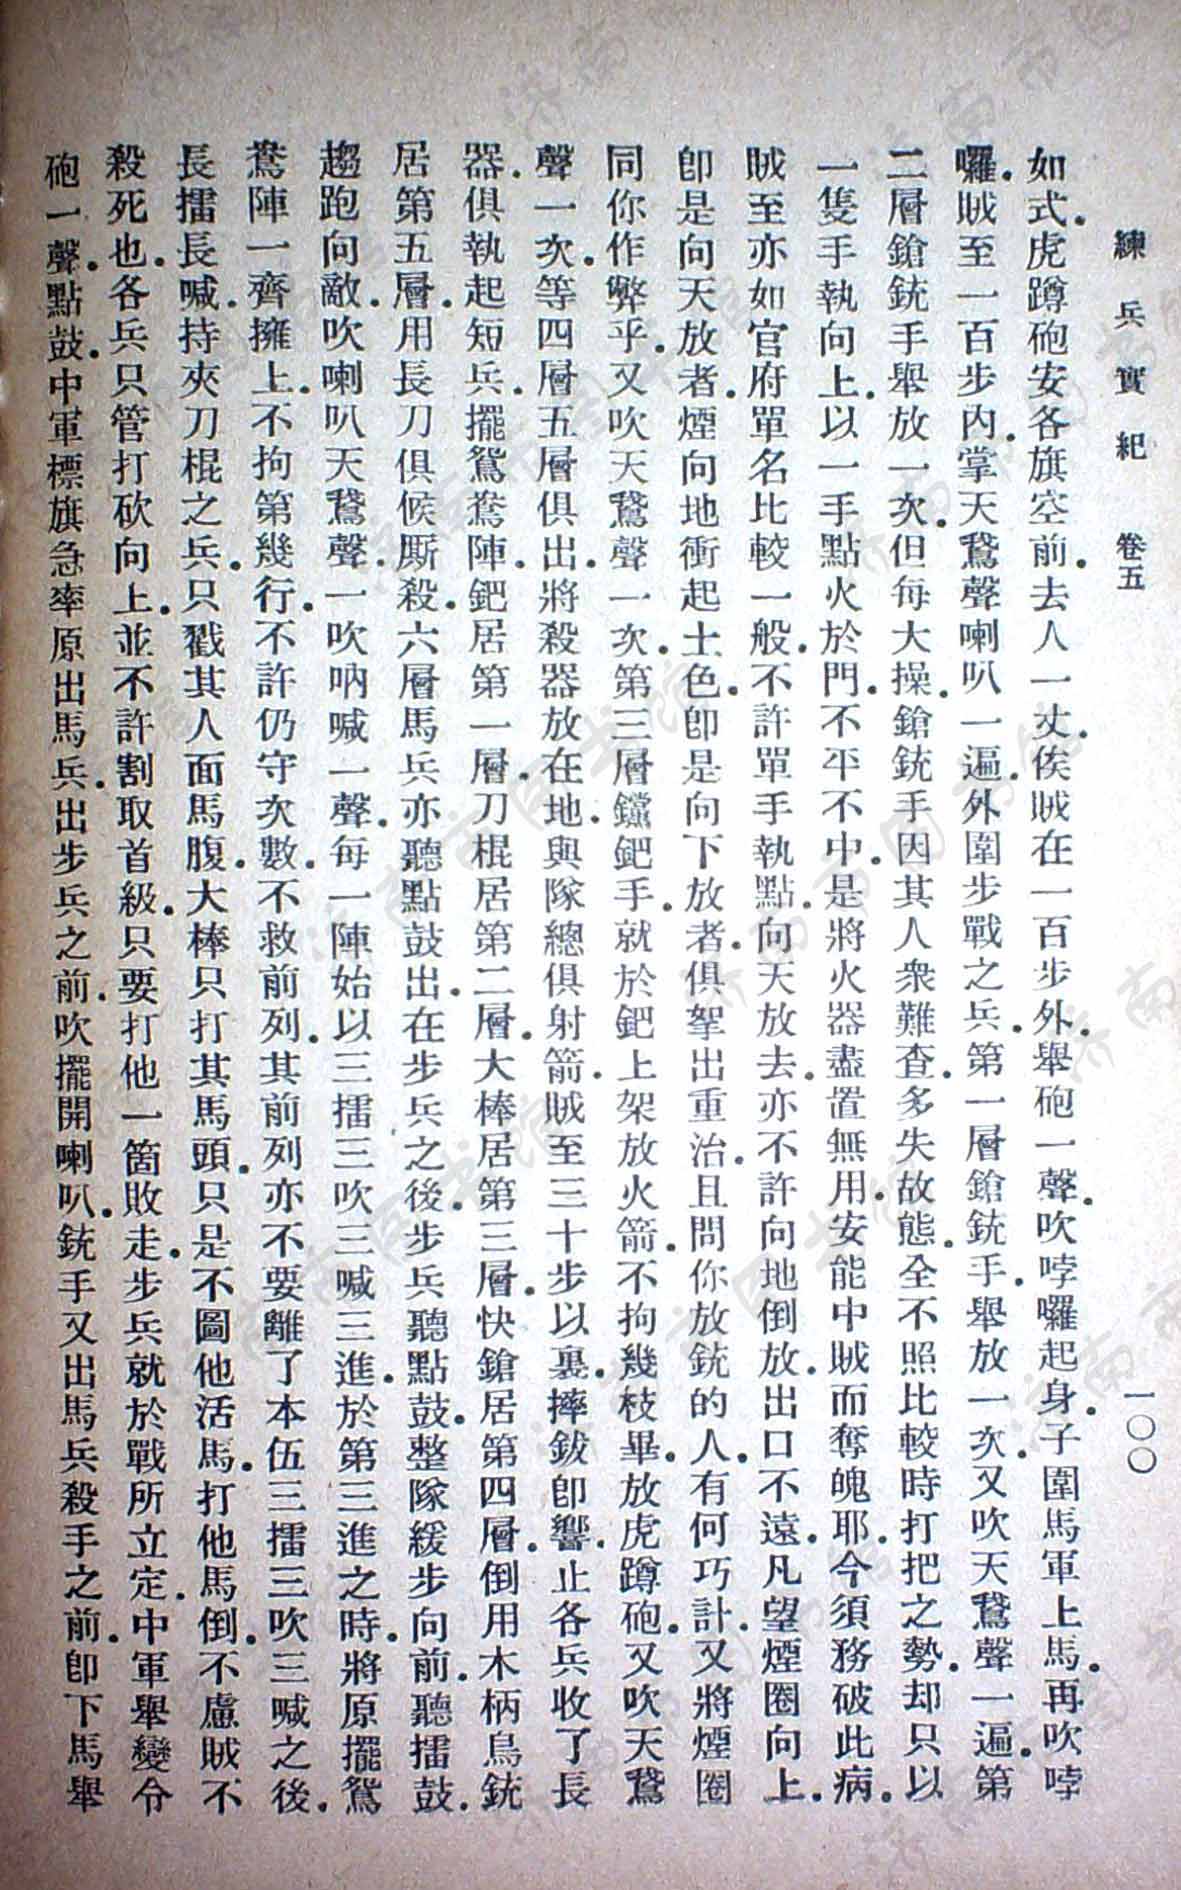 練兵實紀　卷五　一〇〇
如式。虎蹲砲安各旗空前。去人一丈。俟賊在一百步外。舉砲一聲。吹哱囉起身。子圍馬軍上馬。再吹哱
囉。賊至一百步內。掌天鵞聲喇叭一遍。外圍步戰之兵。第一層鎗銃手。舉放一次。又吹天鵞聲一遍。第
二層鎗銃手舉放一次。但每大操。鎗銃手因其人衆難查。多失故態。全不照比較時打把之勢。却只以
一隻手執向上。以一手點火於門。不平不中。是將火器盡置無用。安能中賊而奪魄耶。今須務破此病。
賊至亦如官府單名比較一般。不許單手執點。向天放去。亦不許向地倒放。出口不遠。凡望煙圈向上。
卽是向天放者。煙向地衝起土色。卽是向下放者。俱拏出重治。且問你放銃的人。有何巧計。又將煙圈
同你作弊乎。又吹天鵞聲一次。第三層钂鈀手。就於鈀上架放火箭。不拘幾枝畢。放虎蹲砲。又吹天鵞
聲一次。等四層五層俱出。將殺器放在地。與隊總俱射箭。賊至三十步以裏。摔鈸卽響。止各兵收了長
器。俱執起短兵。擺鴛鴦陣。鈀居第一層。刀棍居第二層。大棒居第三層。快鎗居第四層。倒用木柄鳥銃
居第五層。用長刀俱候厮殺。六層馬兵亦聽點鼓出。在步兵之後。步兵聽點鼓。整隊緩步向前。聽擂鼓。
趨跑向敵。吹喇叭天鵞聲。一吹吶喊一聲。每一陣始以三擂三吹三喊三進。於第三進之時。將原擺鴛
鴦陣一齊擁上。不拘第幾行。不許仍守次數。不救前列。其前列亦不要離了本伍三擂三吹三喊之後。
長擂長喊。持夾刀棍之兵。只戳其人面馬腹。大棒只打其馬頭。只是不圖他活馬。打他馬倒。不慮賊不
殺死也。各兵只管打砍向上。並不許割取首級。只要打他一箇敗走。步兵就於戰所立定。中軍舉變令
砲一聲。點鼓。中軍標旗急率原出馬兵。出步兵之前。吹擺開喇叭。銃手又出馬兵殺手之前。卽下馬舉